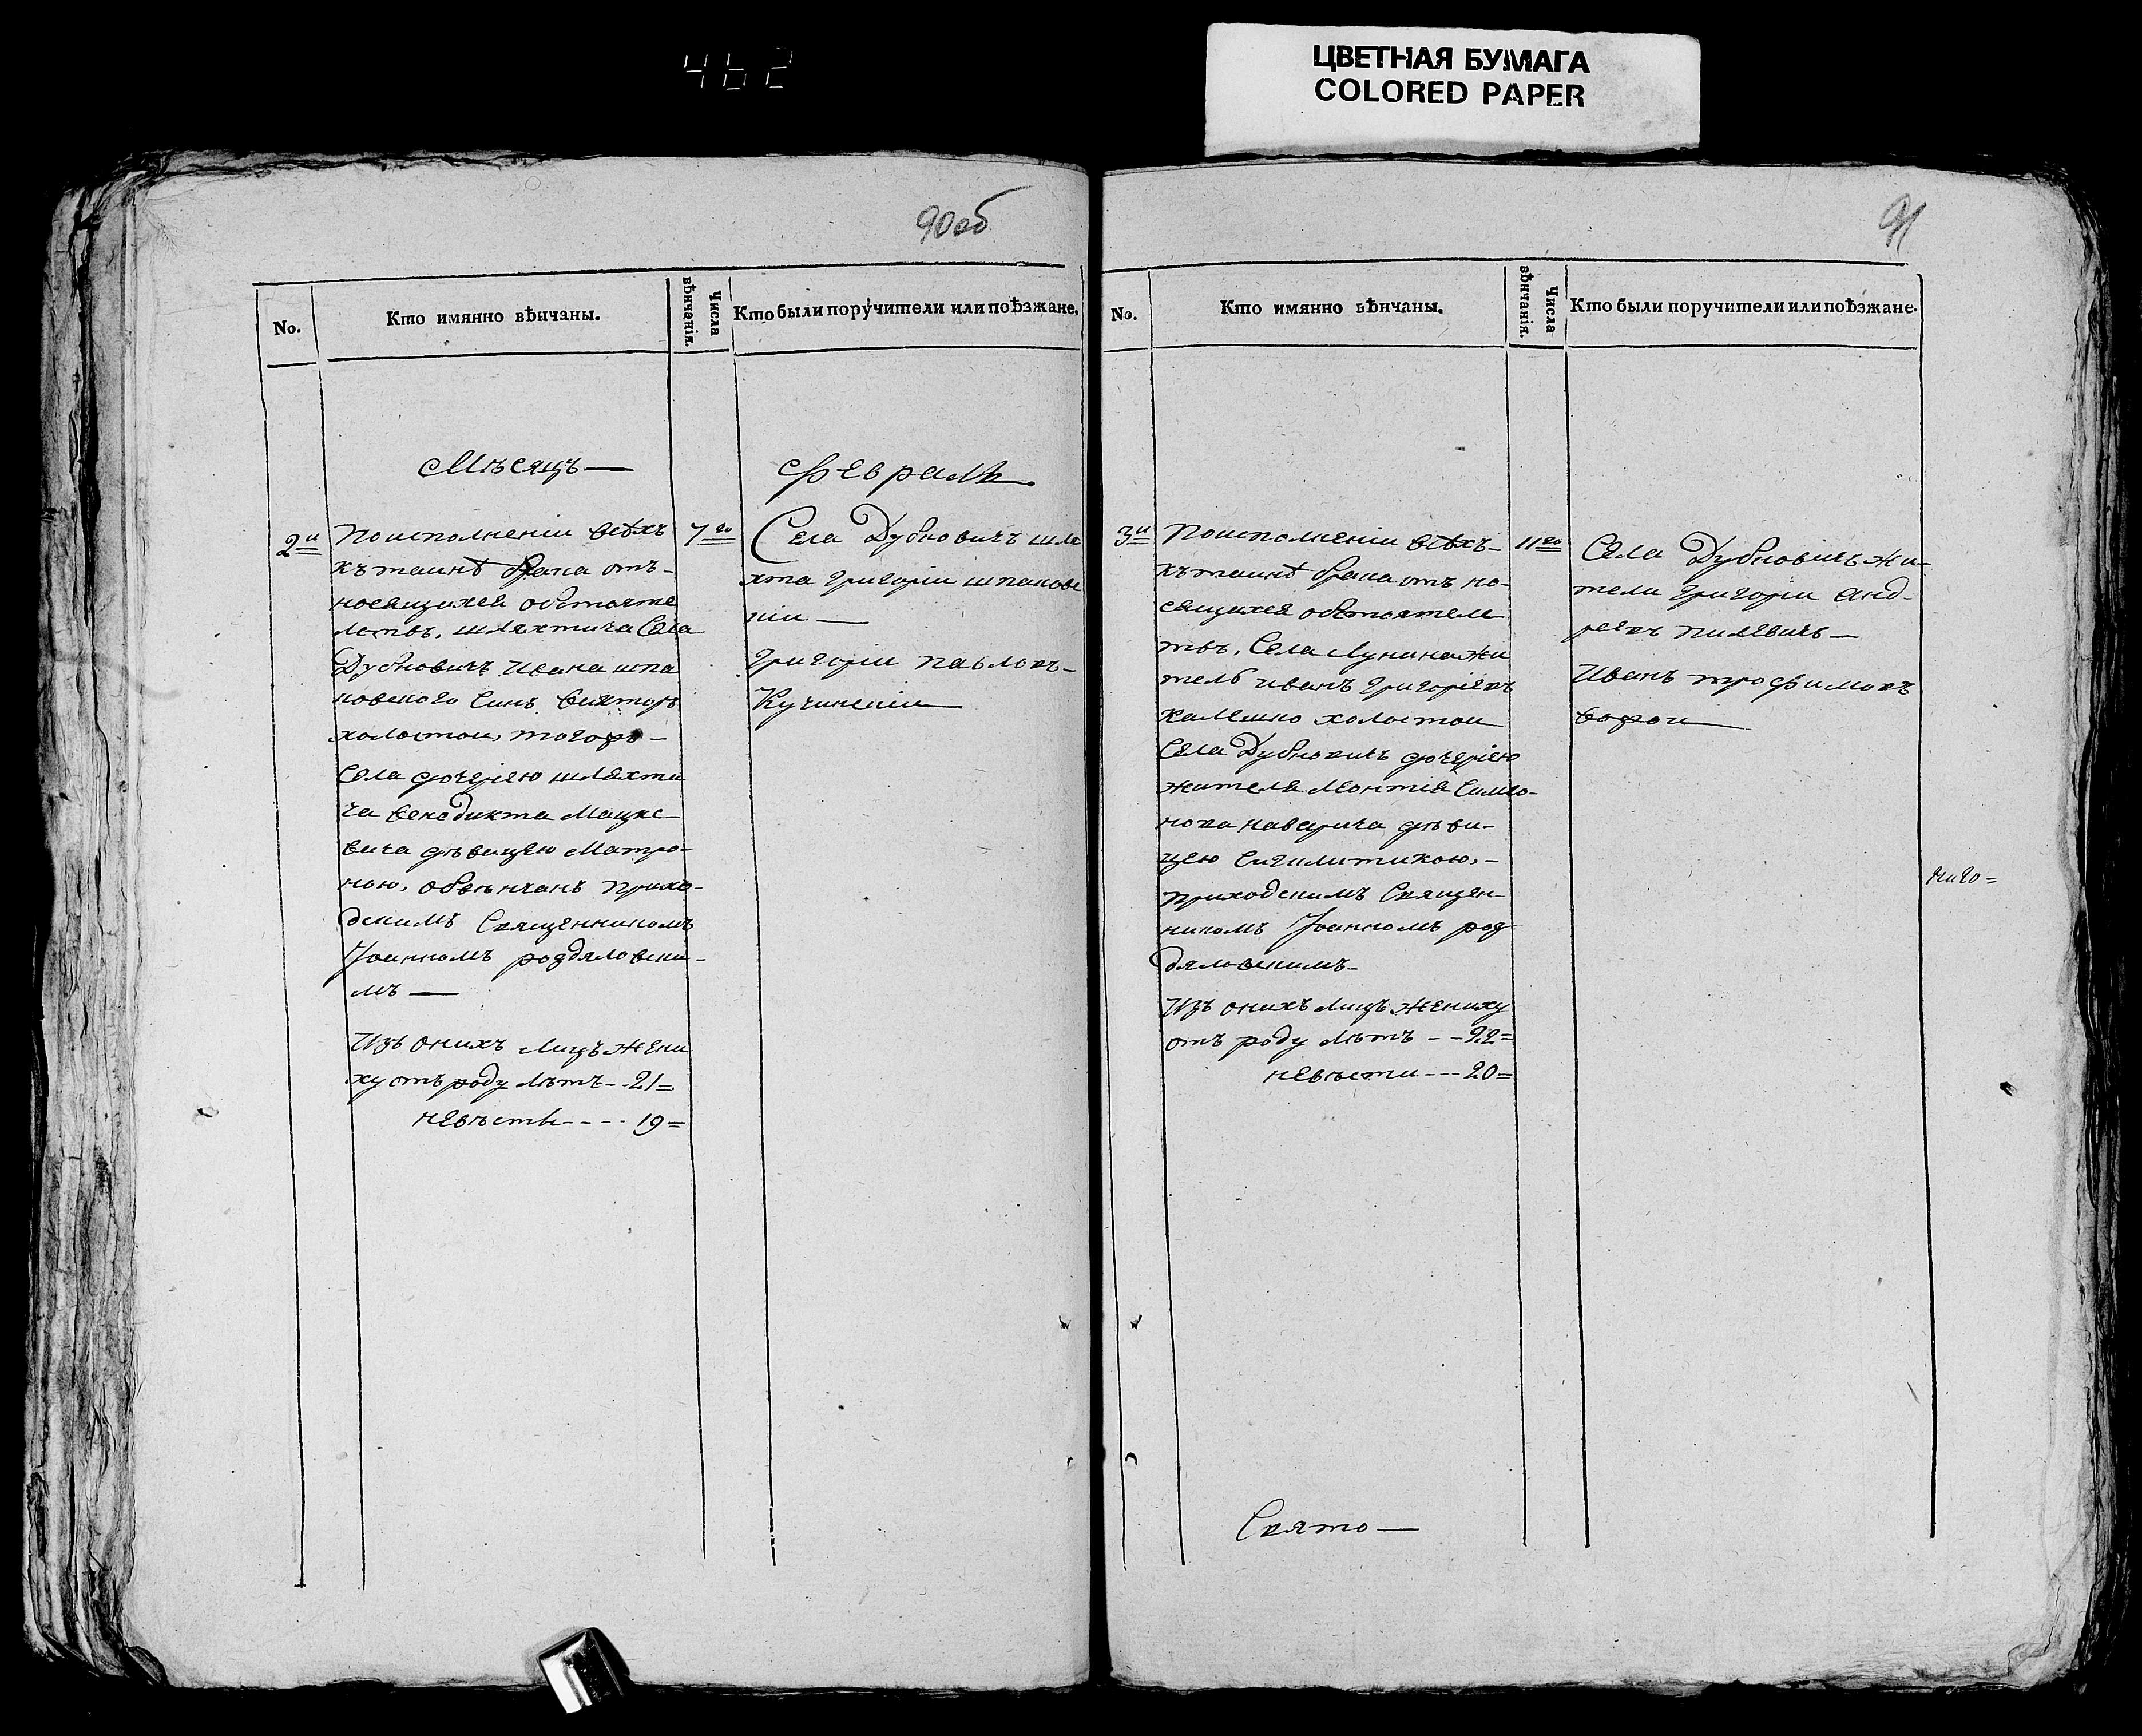 462
ЦВЕТНАЯ БУМАГА
COLORED PAPER
90об
No.
Кто имянно вѣнчаны.
Числа вѣнчанія.
Кто были поручители или поѣзжане.
Мѣсяцъ —
Февраль.
2й
Поисполненіи всѣхъ
къ таинѣ брака отъ-
носящихся обстояте
льствъ, шляхтича Села
Дубновичъ Ивана шпа
ковского Синъ Викторъ
холостои, тогожъ —
Села дочерею шляхти
ча Венедикта Мацке-
вича дѣвицею Матро-
ною, обвѣнчанъ прихо-
дскимъ Священникомъ
Іоанномъ роздяловски-
мъ —
Изъ онихъ лицъ жени
ху отъ роду лѣтъ - - 21=
невѣстѣ - - - - 19=
7го
Села Дубновичъ шля
хта григоріи шпаковс
кіи —
григоріи павловъ-
Кучинскіи
91
No.
Кто имянно вѣнчаны.
Числа вѣнчанія.
Кто были поручители или поѣзжане.
3й
Поисполненіи всѣхъ-
къ таинѣ брака отъ но-
сящихся обстоятель
твъ, Села Лунина жи
тель иванъ григоріевъ
калешко холостои
Села Дубновичъ дочерію
жителя Леонтія Симео-
нова Каверича дѣви-
цею Сигклитикою, -
приходскимъ Священ-
никомъ Іоанномъ роз
дяловскимъ-
Изъ онихъ лицъ жениху
отъ роду лѣтъ - - 22=
невѣсти - - - 20=
11го
Села Дубновичъ жи-
тели григоріи анд-
реевъ пилевичъ —
Иванъ трофимовъ
ничо=
Свято —